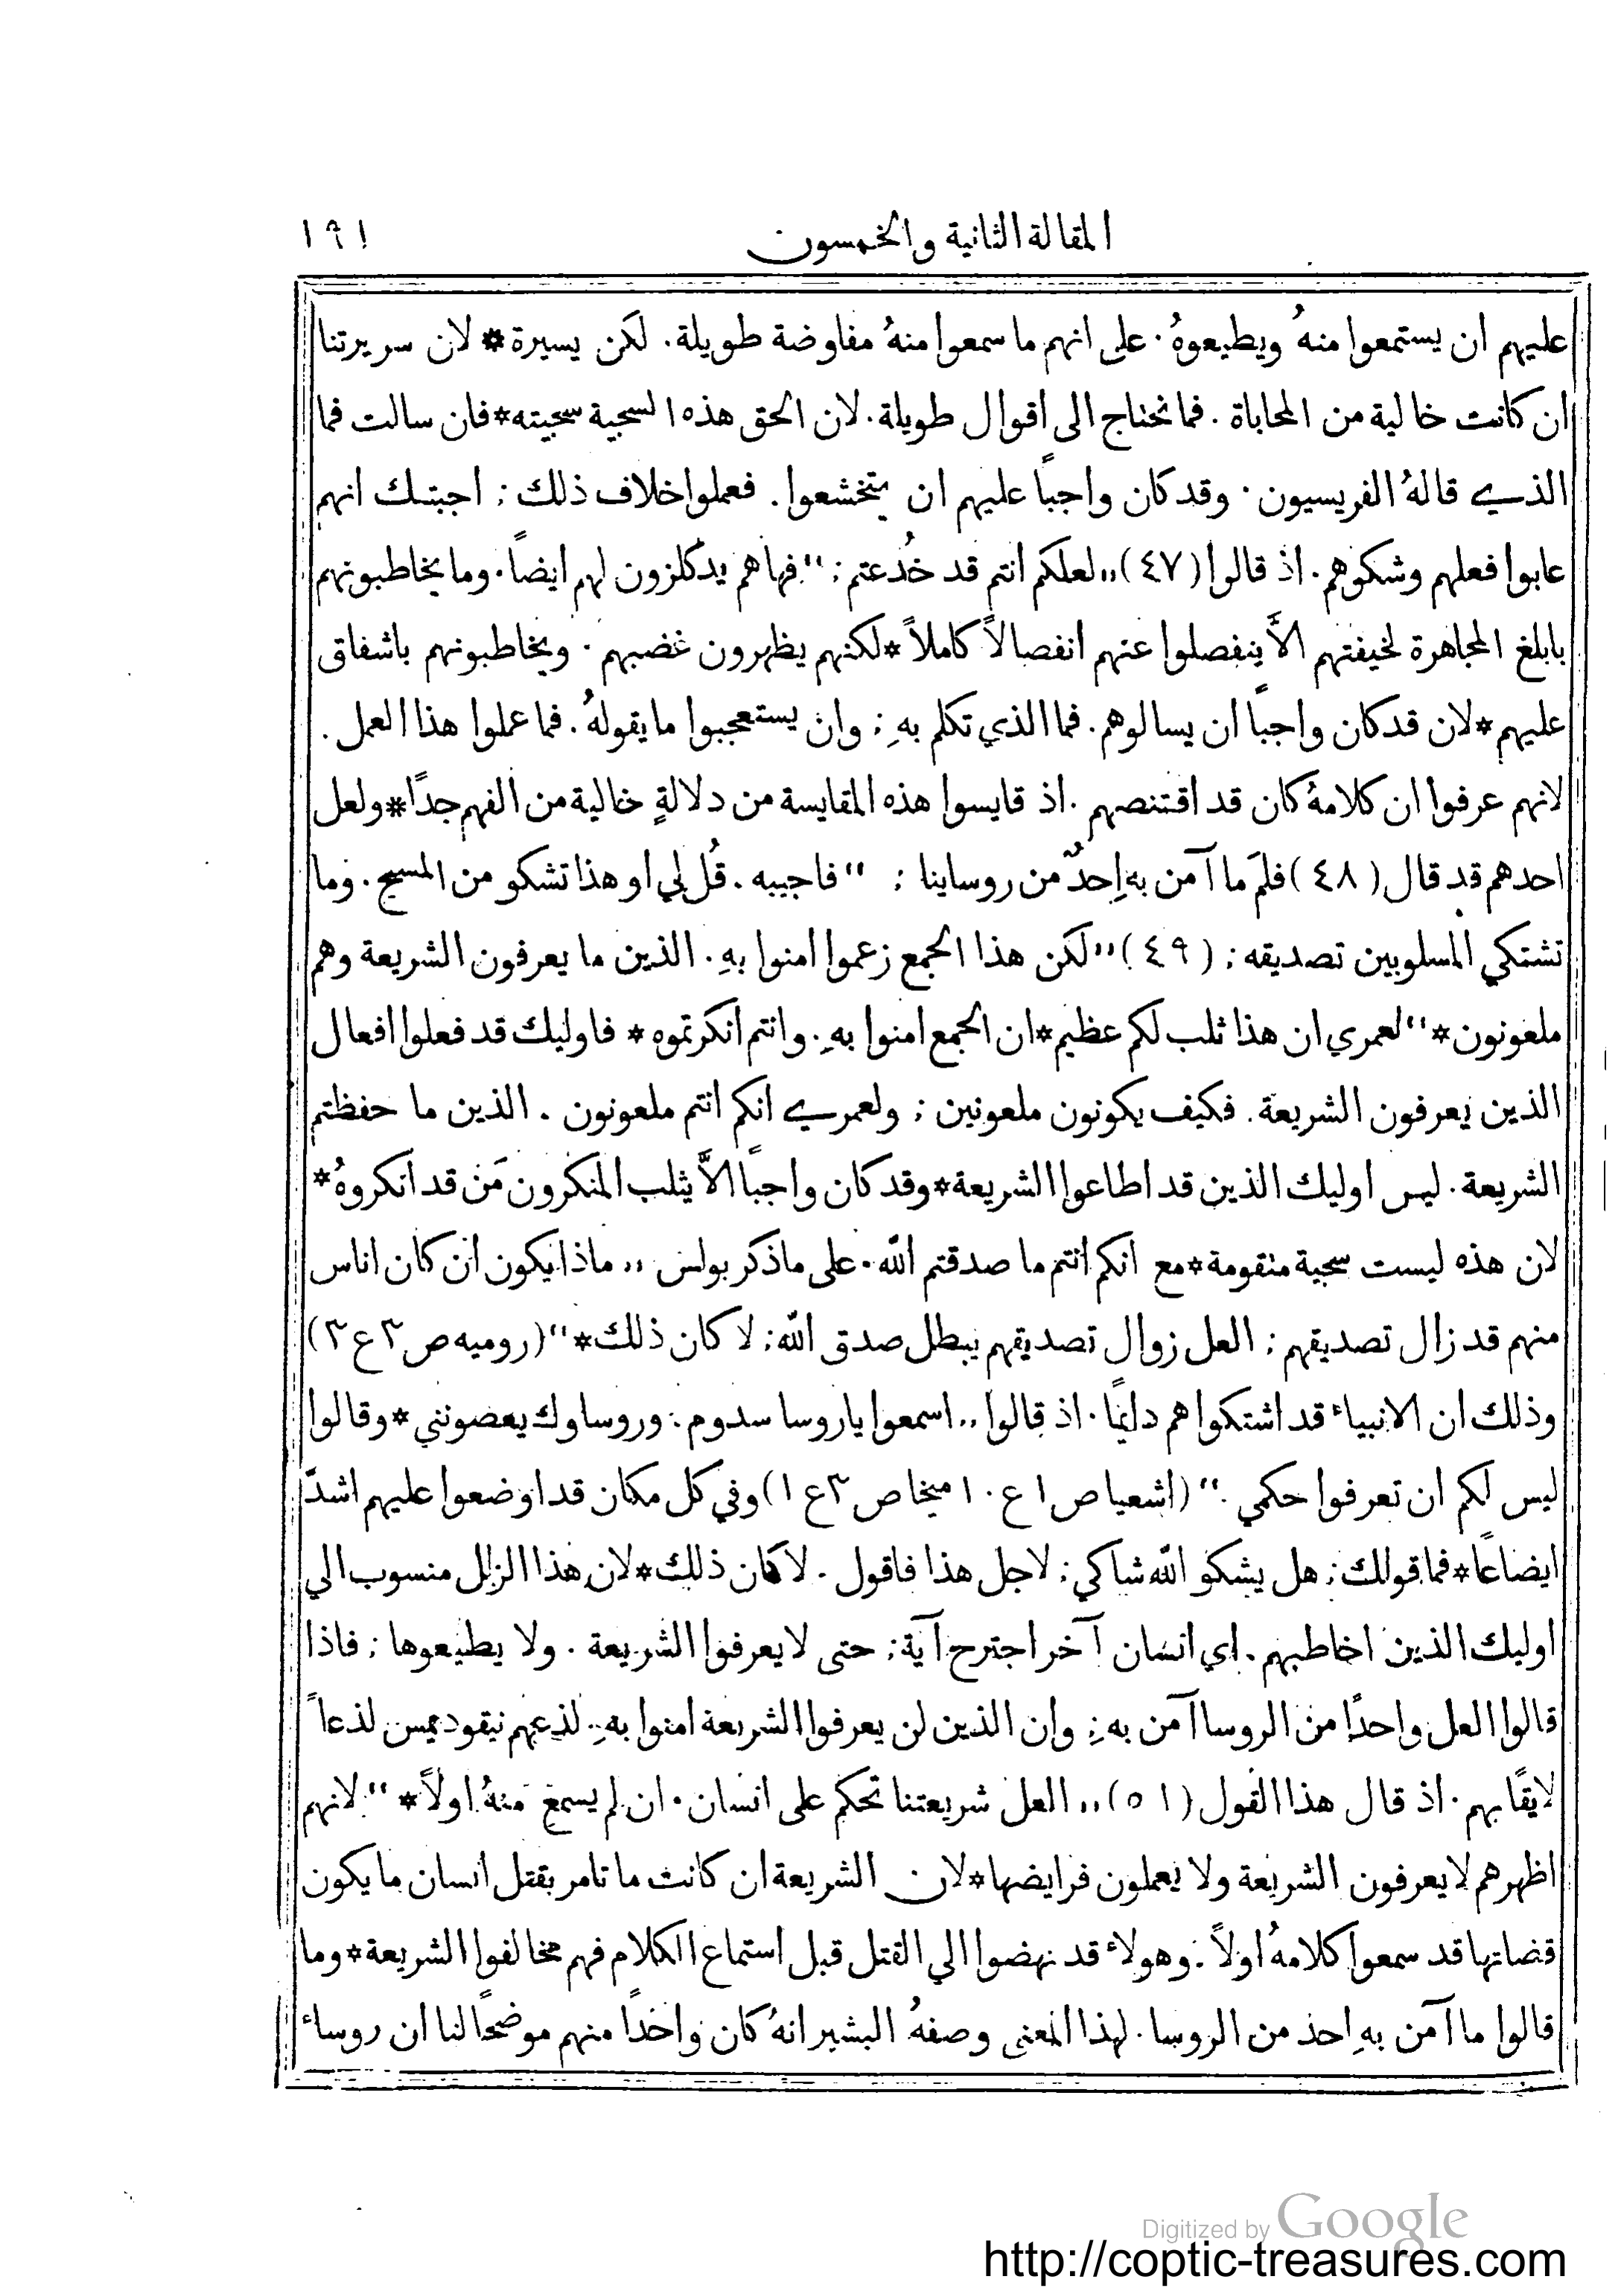 المقالة الثانية والخمسون ١٩١
عليهم ان يستمعوا منهُ ويطيعوهُ. على انهم ما سمعوا منهُ مفاوضة طويلة. لكن يسيرة* لان سريرتنا
ان كانت خالية من المحاباة. فما نحتاج الى اقوال طويلة. لان الحق هذه السجية سجيته* فان سالت فما
الذي قالهُ الفريسيون. وقد كان واجباً عليهم ان يتخشعوا. فعملوا خلاف ذلك; اجبتك انهم
عابوا فعلهم وشكوهم. اذ قالوا (٤٧) ,,لعلكم انتم قد خُدعتم;" فها هم يدكلزون لهم ايضاً. وما يخاطبونهم
بابلغ المجاهرة لخيفتهم الاَّ ينفصلوا عنهم انفصالاً كاملاً* لكنهم يظهرون غضبهم. ويخاطبونهم باشفاق
عليهم* لان قد كان واجباً ان يسالوهم. فما الذي تكلم بهِ; وان يستعجبوا ما يقولهُ. فما عملوا هذا العمل.
لانهم عرفوا ان كلامهُ كان قد اقتنصهم. اذ قايسوا هذه المقايسة من دلالةٍ خالية من الفهم جدًا* ولعل
احدهم قد قال (٤٨) فلمَ ما آمن بهِ احدٌ من روساينا; " فاجيبه. قُل لي او هذا تشكو من المسيح. وما
تشتكي المسلوبين تصديقه; (٤٩) ,,لكن هذا الجمع زعموا امنوا بهِ. الذين ما يعرفون الشريعة وهم
ملعونون*" لعمري ان هذا ثلب لكم عظيم* ان الجمع امنوا بهِ. وانتم انكرتموه* فاوليك قد فعلوا افعال
الذين يعرفون الشريعة. فكيف يكونون ملعونين; ولعمري انكم انتم ملعونون. الذين ما حفظتم
الشريعة. ليس اوليك الذين قد اطاعوا الشريعة* وقد كان واجباً الاَّ يثلب المنكرون مَن قد انكروهُ*
لان هذه ليست سجية متقومة* مع انكم انتم ما صدقتم الله. على ما ذكر بولس ,,ماذا يكون ان كان اناس
منهم قد زال تصديقهم; العل زوال تصديقهم يبطل صدق الله; لا كان ذلك*" (روميه ص٣ ع٣)
وذلك ان الانبياء قد اشتكوا هم دايمًا. اذ قالوا ,,اسمعوا يا روسا سدوم: وروساوك يعصونني* وقالوا
ليس لكم ان تعرفوا حكمي." (اشعيا ص١ ع١٠ ميخا ص٣ ع١) وفي كل مكان قد اوضعوا عليهم اشدّ
ايضاعًا* فما قولك; هل يشكو الله شاكي; لاجل هذا فاقول. لا كان ذلك* لان هذا الزلل منسوب الي
اوليك الذين اخاطبهم. اي انسان آخر اجترح آية; حتى لا يعرفوا الشريعة. ولا يطيعوها; فاذا
قالوا العل واحدًا من الروسا آمن به; وان الذين لن يعرفوا الشريعة امنوا بهِ. لذعهم نيقوديمس لذعاً
لايقًا بهم. اذ قال هذا القول (٥١) ,,العل شريعتنا تحكم على انسان. ان لم يسمع منهُ اولاً*" لانهم
اظهرهم لا يعرفون الشريعة ولا يعملون فرايضها* لان الشريعة ان كانت ما تامر بقتل انسان ما يكون
قضاتها قد سمعوا كلامهُ اولاً. وهولاء قد نهضوا الي القتل قبل استماع الكلام فهم مخالفوا الشريعة* وما
قالوا ما آمن بهِ احد من الروسا. لهذا المعنى وصفهُ البشير انهُ كان واحدًا منهم موضحًا لنا ان روساء
Digitized by Google
http://coptic-treasures.com